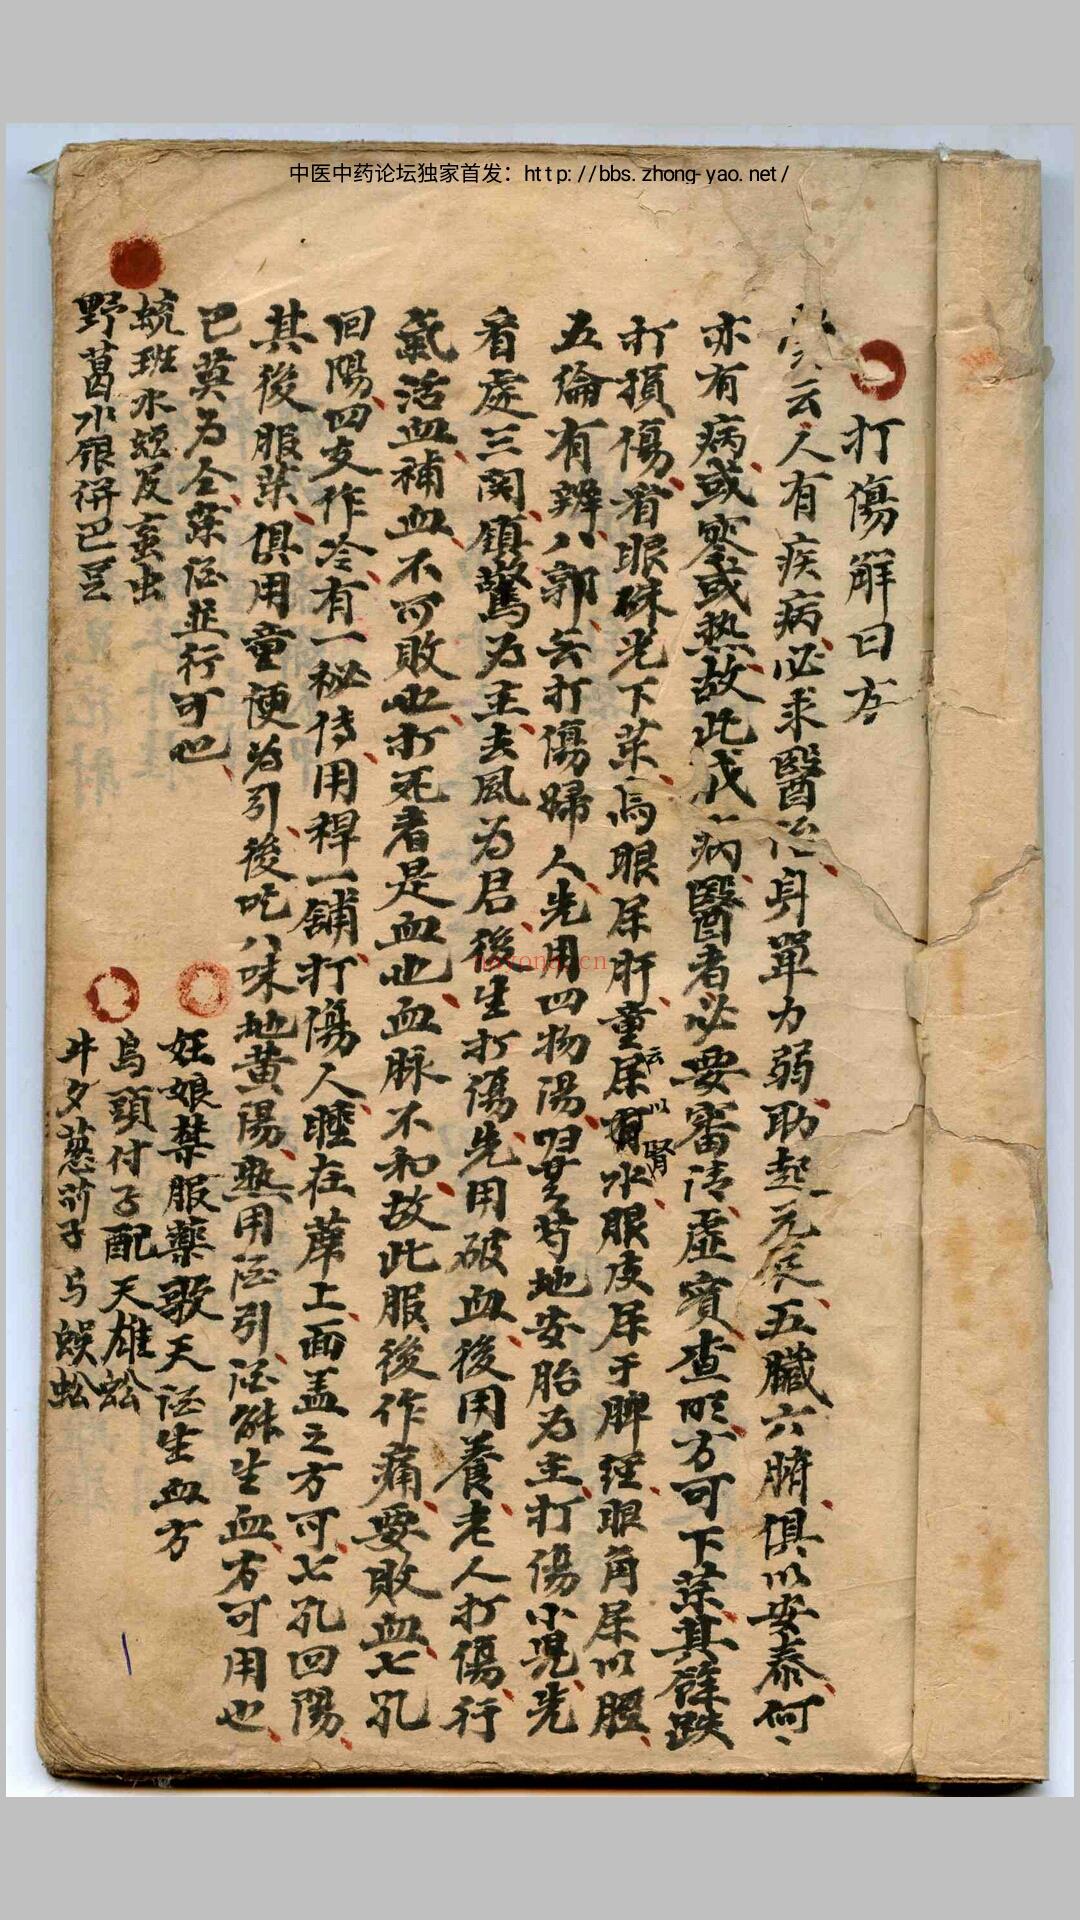 中医中药论坛独家首发：http://bbs.zhong-yao.net/
打傷解曰方
云人有疾病必求醫治身單力弱助起元氣五臟六腑俱以安泰何
亦有病或寒或热故此成病醫者必要審清虛實查明方可下药其跌
打損傷看眼珠光下药烏眼屎肝童屎水眼皮屎于脾經眼角屎以腽
云以腎
五倫有辨八郭云打傷婦人先用四物湯归芎地安胎为主打傷小児先
看處三関鎮驚为主去風为君後生打傷先用破血後用養老人打傷行
氣活血補血不可敗也打死者是血也血脉不和故此服後作痛要敗血七孔
回陽四支作冷有一秘傳用稈一舖打傷人睡在蓆上面盖之方可七孔回陽
其後服药俱用童便为引後吃八味地黄湯熟用酒引酒能生血方可用也
已莫为仝药酒並行可也
妊娘禁服藥歌天酒生血方
蚖班水蛭及虻虫
烏頭付子配天雄蚣
野葛水银併巴豆
牛夕薏苡子与蜈蚣